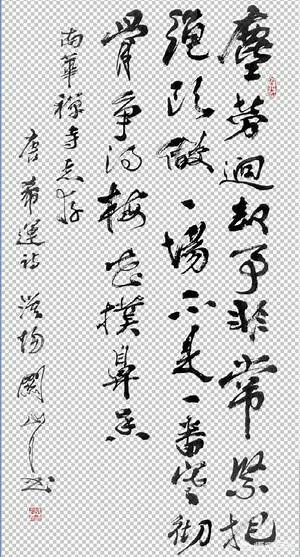 塵勞迴脫事非常緊把
繩頭做一場不是一番寒彻
骨爭得梅花撲鼻香
南華禪寺惠存
唐希運詩